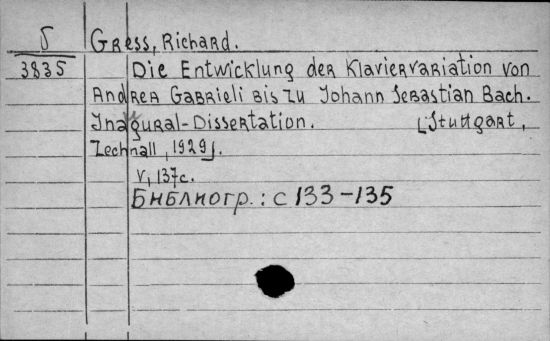 S Gress, Richard.
3835 Die Entwicklung der Klaviervariation von
Andrea Gabrieli bis zu Johann Sebastian Bach.
Inaugural-Dissertation. [Stuttgart,
Zechnall, 1929].
V, 137c.
Библиогр.: с 133-135